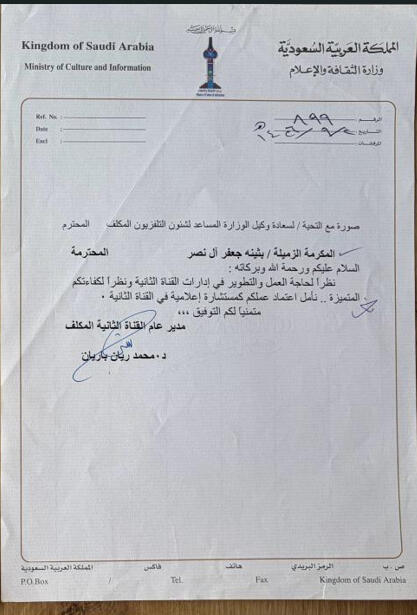 Kingdom of Saudi Arabia
Ministry of Culture and Information
المملكة العربية السعودية
وزارة الثقافة والإعلام
Ref. No. :
Date :
Encl :
الرقم ٨٩٩
التاريخ
المرفقات
صورة مع التحية / لسعادة وكيل الوزارة المساعد لشئون التلفزيون المكلف المحترم
المكرمة الزميلة / بثينه جعفر آل نصر المحترمة
السلام عليكم ورحمة الله وبركاته :
نظراً لحاجة العمل والتطوير في إدارات القناة الثانية ونظراً لكفاءتكم
المتميزة .. نأمل اعتماد عملكم كمستشارة إعلامية في القناة الثانية .
متمنياً لكم التوفيق ،،،
مدير عام القناة الثانية المكلف
د.محمد ريان باريان
ص . ب الرمز البريدي هاتف فاكس المملكة العربية السعودية
P.O.Box / Tel. Fax Kingdom of Saudi Arabia